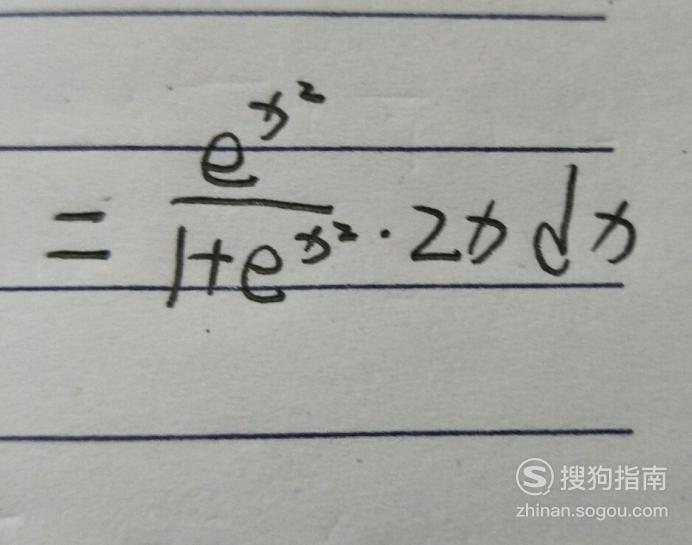 = e^{x^2} / (1+e^{x^2}) · 2x dx
搜狗指南
zhinan.sogou.com